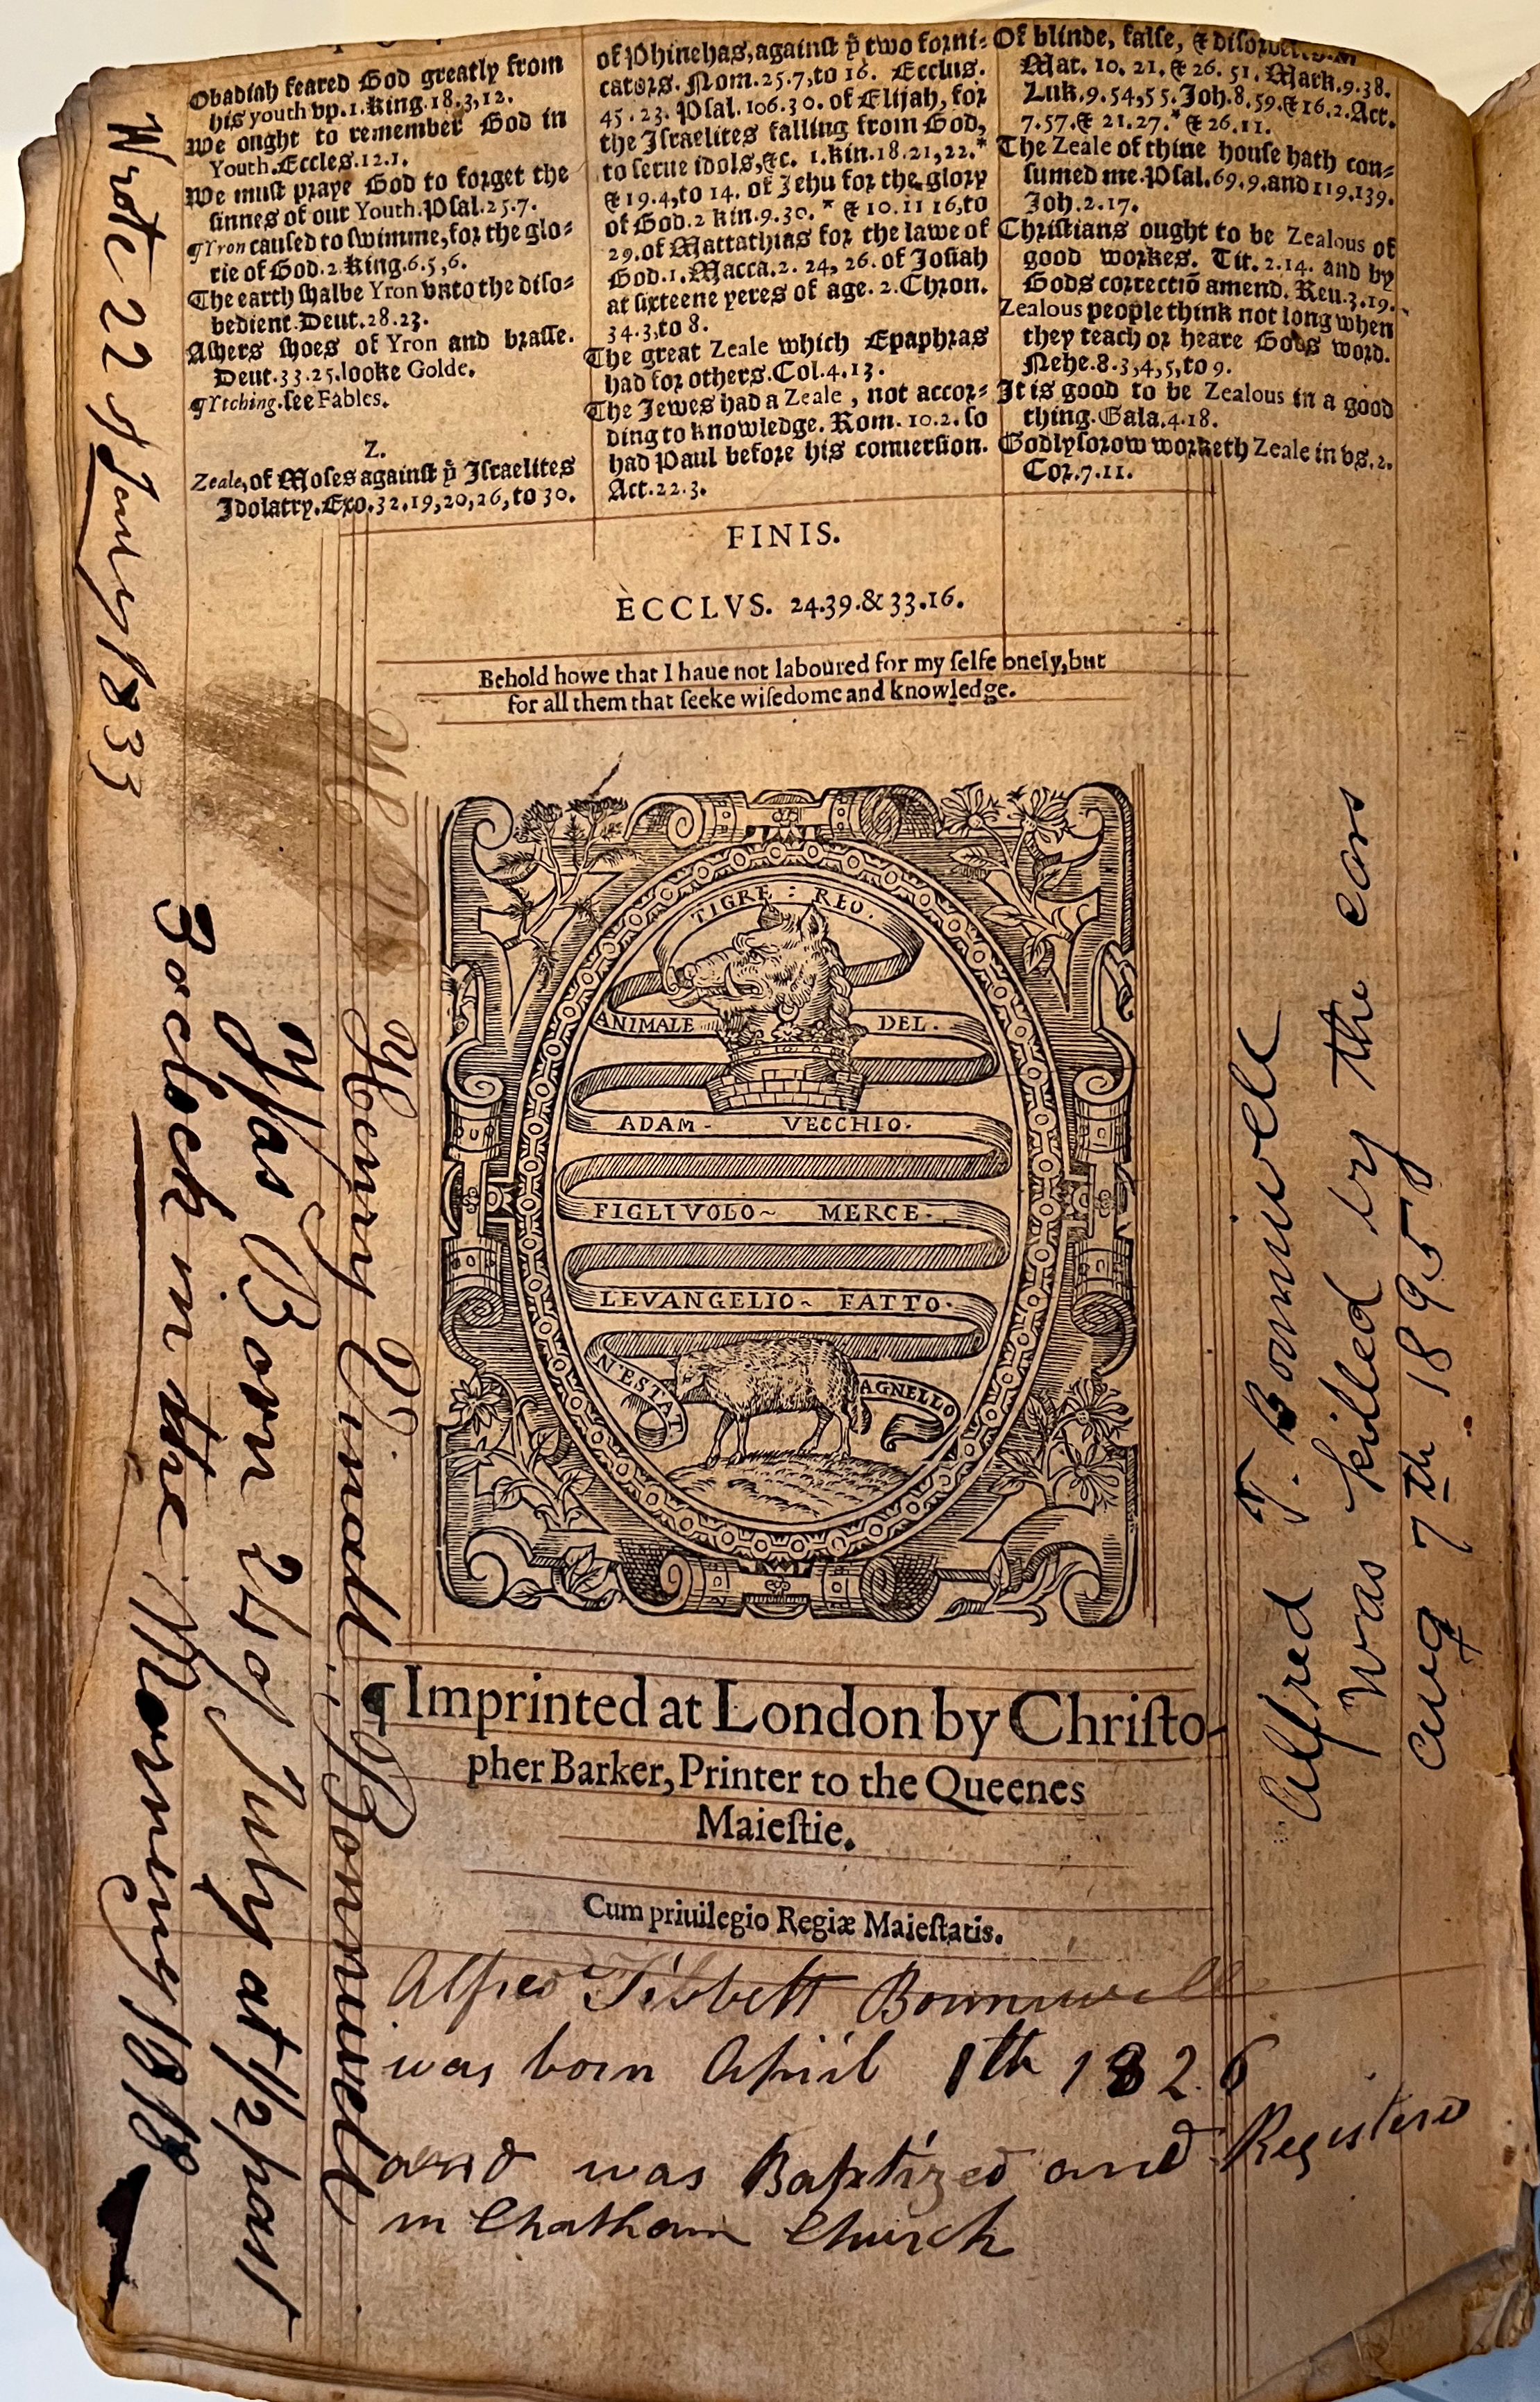 Obadiah feared God greatly from
his youth vp. 1. King. 18. 3, 12.
We ought to remember God in
Youth. Eccles. 12. 1.
We must praye God to forget the
sinnes of our Youth. Psal. 25. 7.
¶Yron caused to swimme, for the glo-
rie of God. 2. King. 6. 5, 6.
The earth shalbe Yron vnto the diso-
bedient. Deut. 28. 23.
Ashers shoes of Yron and brasse.
Deut. 33. 25. looke Golde.
¶Ytching. see Fables.
Z.
Zeale, of Moses against ẙ Israelites
Idolatry. Exo. 32. 19, 20, 26, to 30.
of Phinehas, against ẙ two forni-
cators. Nom. 25. 7, to 16. Ecclus.
45. 23. Psal. 106. 30. of Elijah, for
the Israelites falling from God,
to serue idols, &c. 1. kin. 18. 21, 22.*
& 19. 4, to 14. of Jehu for the glory
of God. 2 kin. 9. 30. * & 10. 11 16, to
29. of Mattathias for the lawe of
God. 1. Macca. 2. 24, 26. of Josiah
at sixteene yeres of age. 2. Chron.
34. 3, to 8.
The great Zeale which Epaphras
had for others. Col. 4. 13.
The Jewes had a Zeale, not accor-
ding to knowledge. Rom. 10. 2. so
had Paul before his conuersion.
Act. 22. 3.
Of blinde, false, &
Mat. 10. 21. & 26. 51. Mark. 9. 38.
Luk. 9. 54, 55. Joh. 8. 59. & 16. 2. Act.
7. 57. & 21. 27. * & 26. 11.
The Zeale of thine house hath con-
sumed me. Psal. 69. 9. and 119. 139.
Joh. 2. 17.
Christians ought to be Zealous of
good workes. Tit. 2. 14. and by
Gods correctiō amend. Reu. 3. 19.
Zealous people think not long when
they teach or heare Gods word.
Nehe. 8. 3, 4, 5, to 9.
It is good to be Zealous in a good
thing. Gala. 4. 18.
Godly sorow worketh Zeale in vs. 2.
Cor. 7. 11.
FINIS.
ECCLVS. 24.39.& 33.16.
Behold howe that I haue not laboured for my selfe onely, but
for all them that seeke wisedome and knowledge.
TIGRE : REO.
ANIMALE DEL.
ADAM- VECCHIO.
FIGLIVOLO~ MERCE.
LEVANGELIO~ FATTO.
N'ESTAT AGNELLO
¶Imprinted at London by Christo-
pher Barker, Printer to the Queenes
Maiestie.
Cum priuilegio Regiæ Maiestatis.
Alfred Tibbett Bonniwell
was born April 1th 1826
and was Baptized and Registered
in Chatham Church
Wrote 22 of January 1833
Henry Vinall Bonniwell
Was Born 24 of July at 1/2 past
3 oclock in the Morning 1818
Alfred T. Bonniwell
Was killed by the cars
Aug 7th 1895